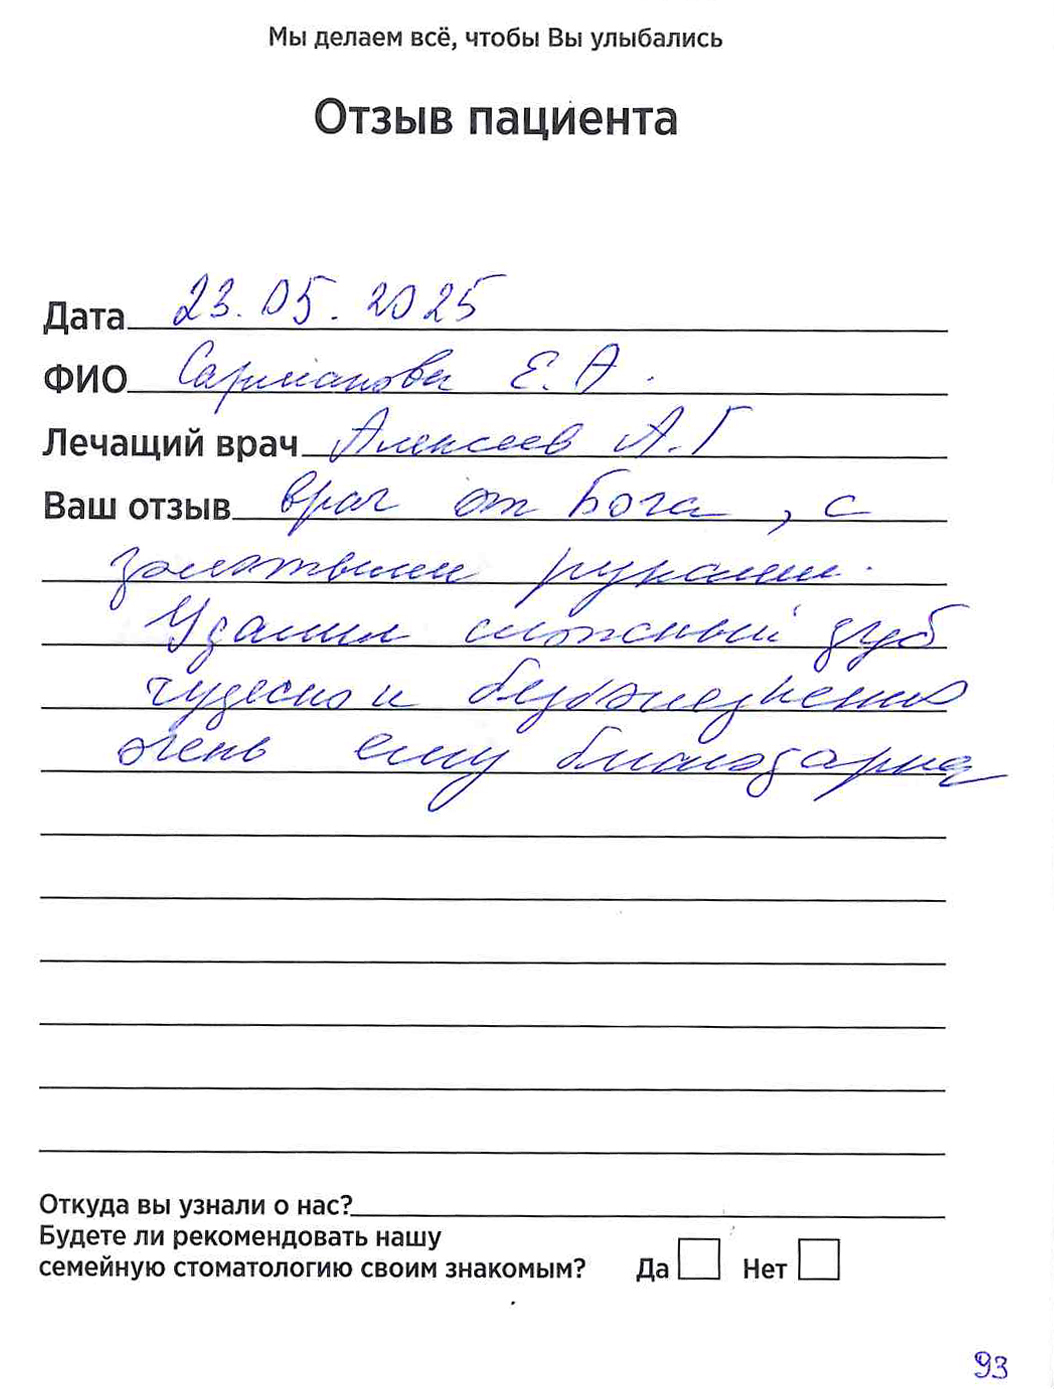 Мы делаем всё, чтобы Вы улыбались
Отзыв пациента
Дата 23.05.2025
ФИО Сарманова Е.А.
Лечащий врач Алексеев А.Г
Ваш отзыв врач от Бога, с
золотыми руками.
Удалил сложный зуб
чудесно и безболезненно
очень ему благодарна
Откуда вы узнали о нас?
Будете ли рекомендовать нашу
семейную стоматологию своим знакомым? Да Нет
93